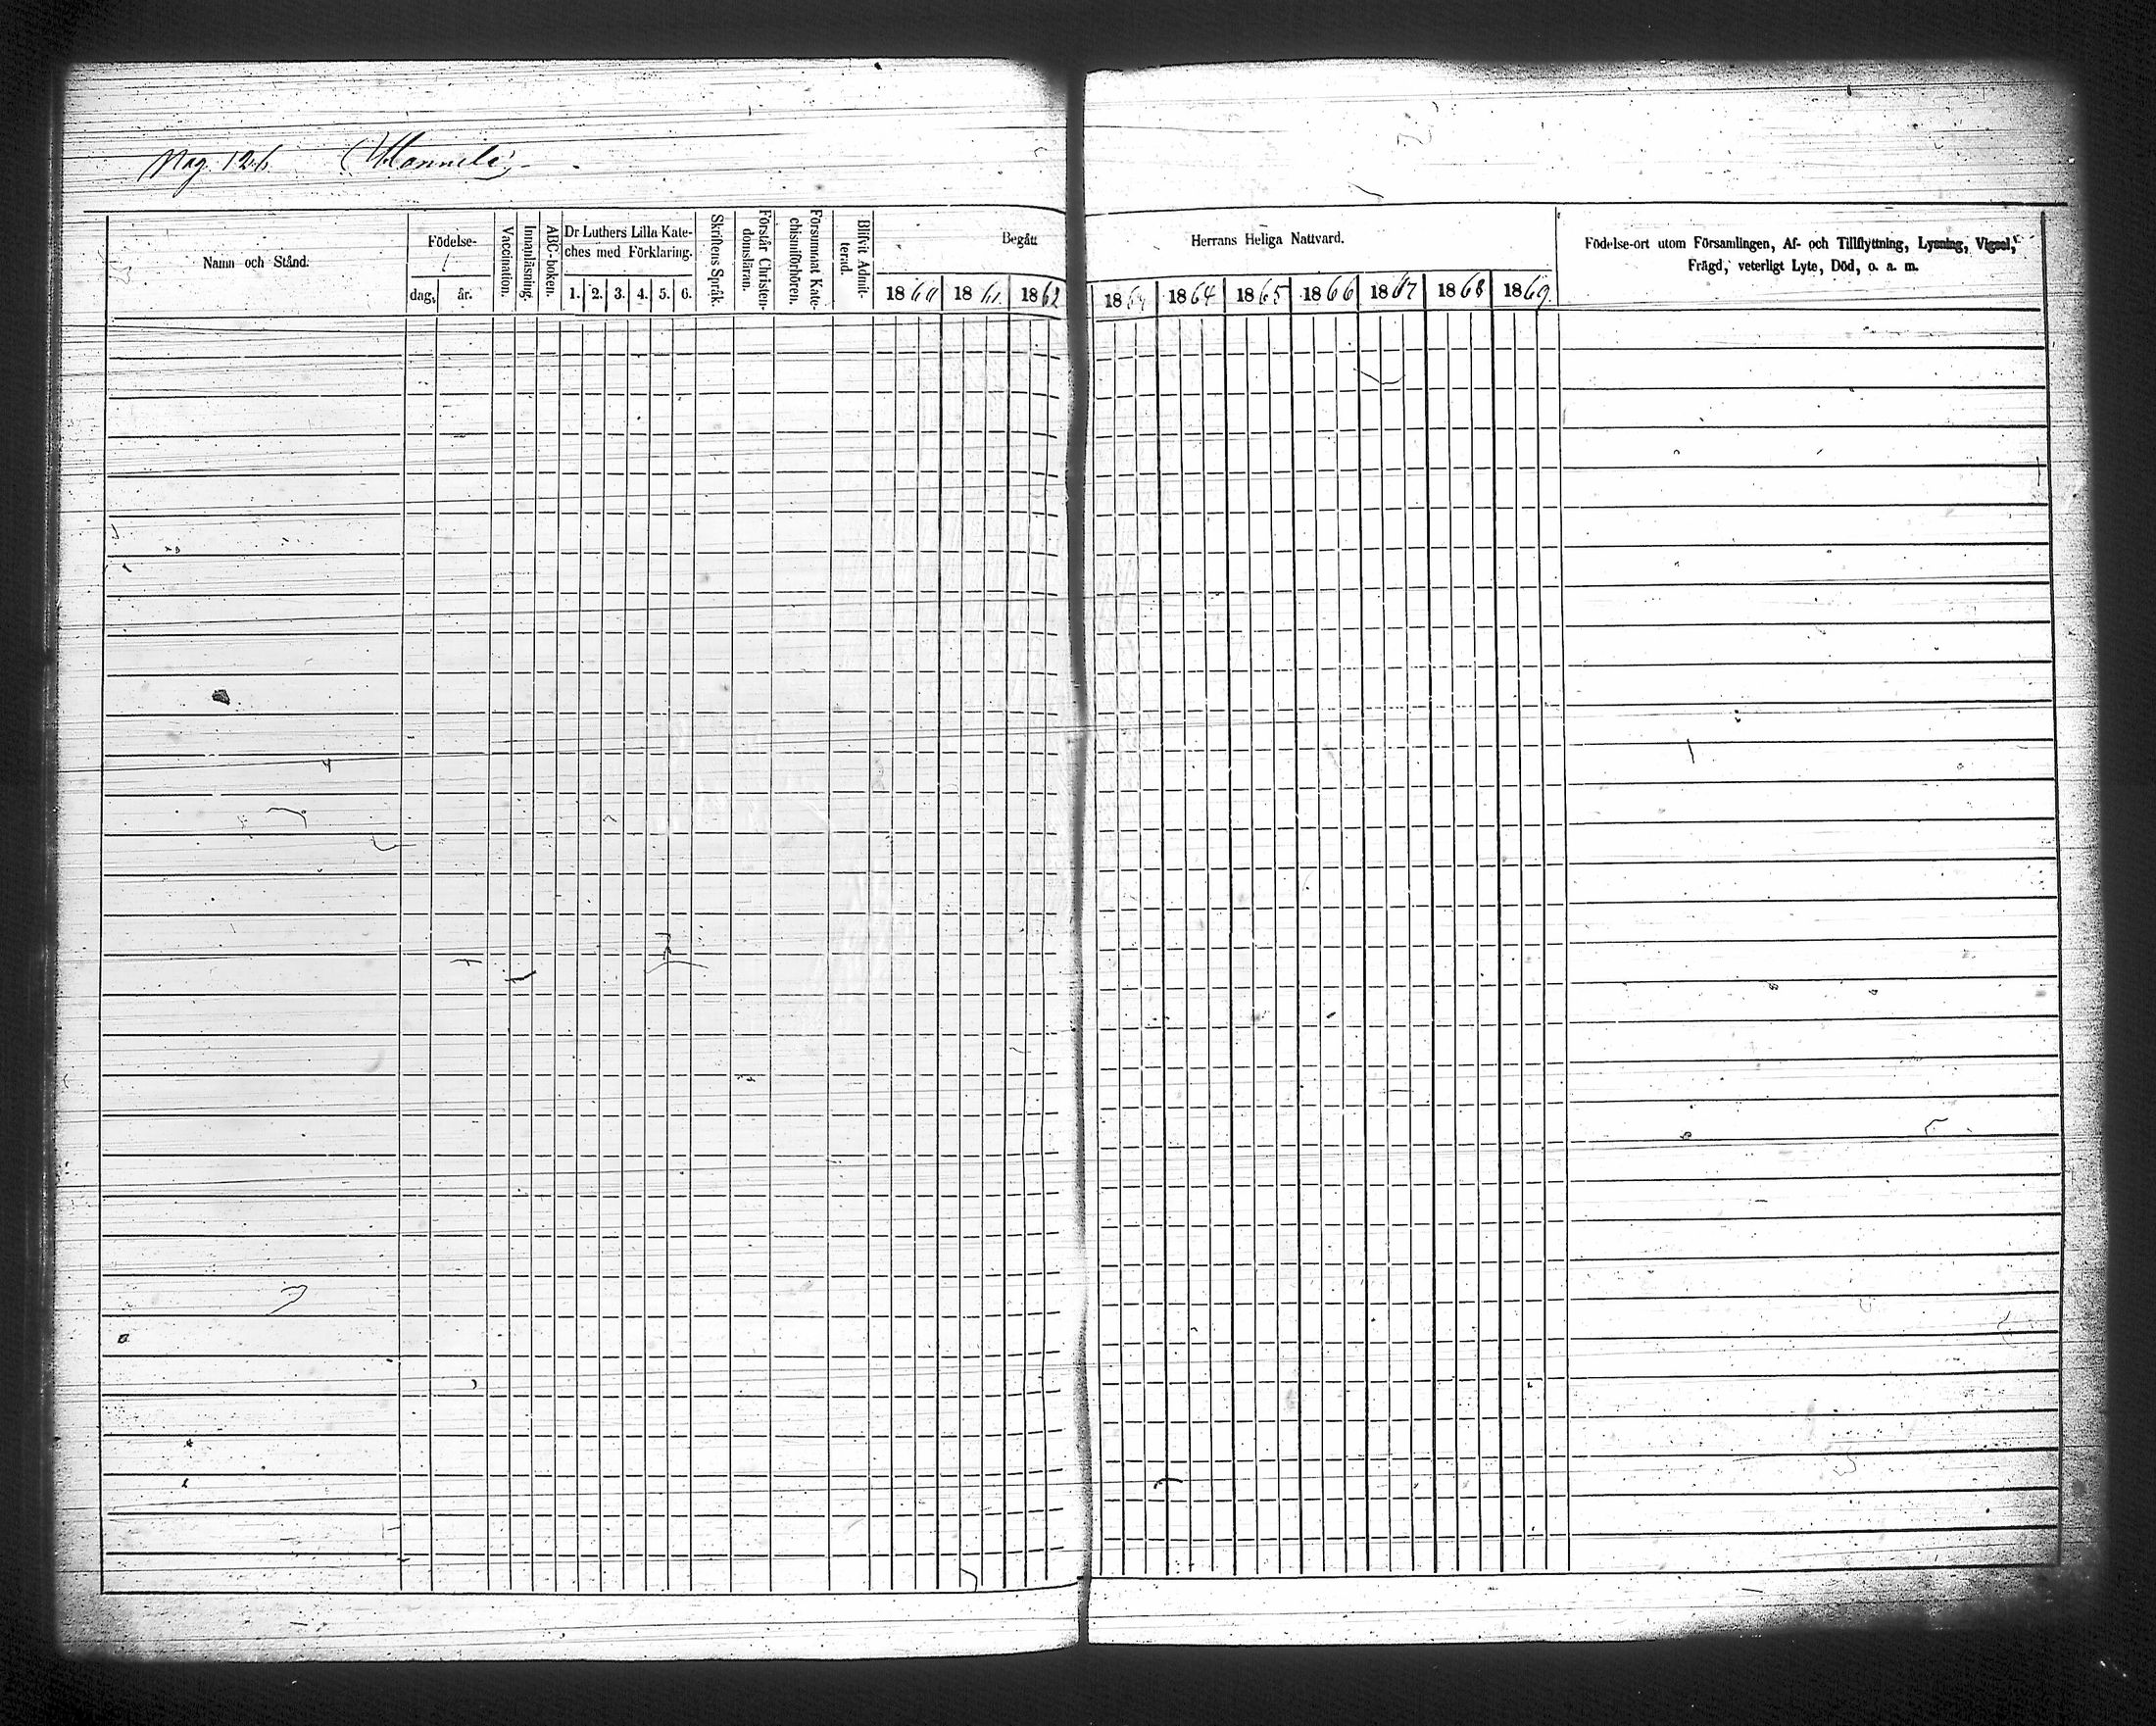 Pag. 126.
Namn och Stånd.
Födelse-
dag,
år.
Vaccination.
Innanläsning.
ABC-boken.
Dr Luthers Lilla Kate-
ches med Förklaring.
1. 2. 3. 4. 5. 6.
Skriftens Språk.
Förstår Christen-
domsläran.
Försummat Kate-
chismiförhören.
Blifvit Admit-
terad.
Begått
Herrans Heliga Nattvard.
1860 1861. 1862 1863 1864 1865 1866 1867 1868 1869.
Födelse-ort utom Församlingen, Af- och Tillflyttning, Lysning, Vigsel,
Frägd, veterligt Lyte, Död, o. a. m.